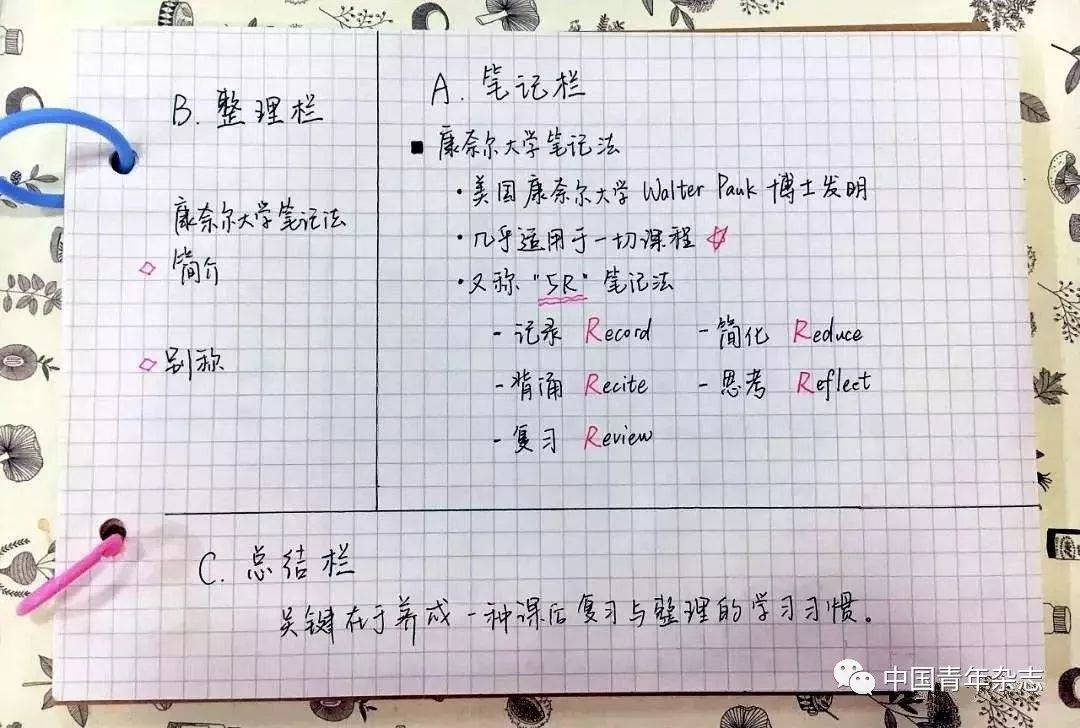 B. 整理栏
康奈尔大学笔记法
简介
别称
A. 笔记栏
康奈尔大学笔记法
·美国康奈尔大学 Walter Pauk 博士发明
·几乎适用于一切课程
·又称"5R"笔记法
-记录 Record -简化 Reduce
-背诵 Recite -思考 Reflect
-复习 Review
C. 总结栏
关键在于养成一种课后复习与整理的学习习惯。
中国青年杂志